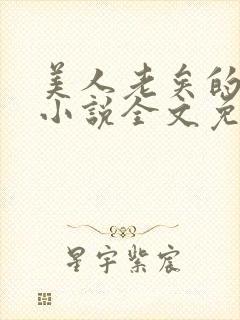 美人老矣的
小说全文免
星宇紫宸